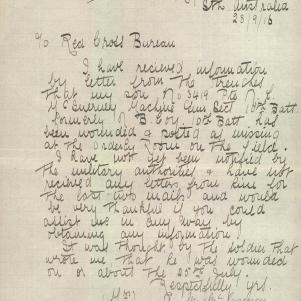 Sth Australia
28/9/16
To Red Cross Bureau
I have recieved information
by letter from The Trenches
that my son, No 3419 Pte L
McEnerney Machine Gun Sect 10th Batt
formerly of B Coy 10th Batt, has
been wounded & posted as missing
at the Orderly Room on The field.
I have not yet been notified by
the military authorities & have not
received any letters from him for
the last two mails and would
be very thankful if you could
assist me in any way by
obtaining any information.
It was thought by the soldier that
wrote me that he was wounded
on or about the 25th July.
Respectfully yrs.